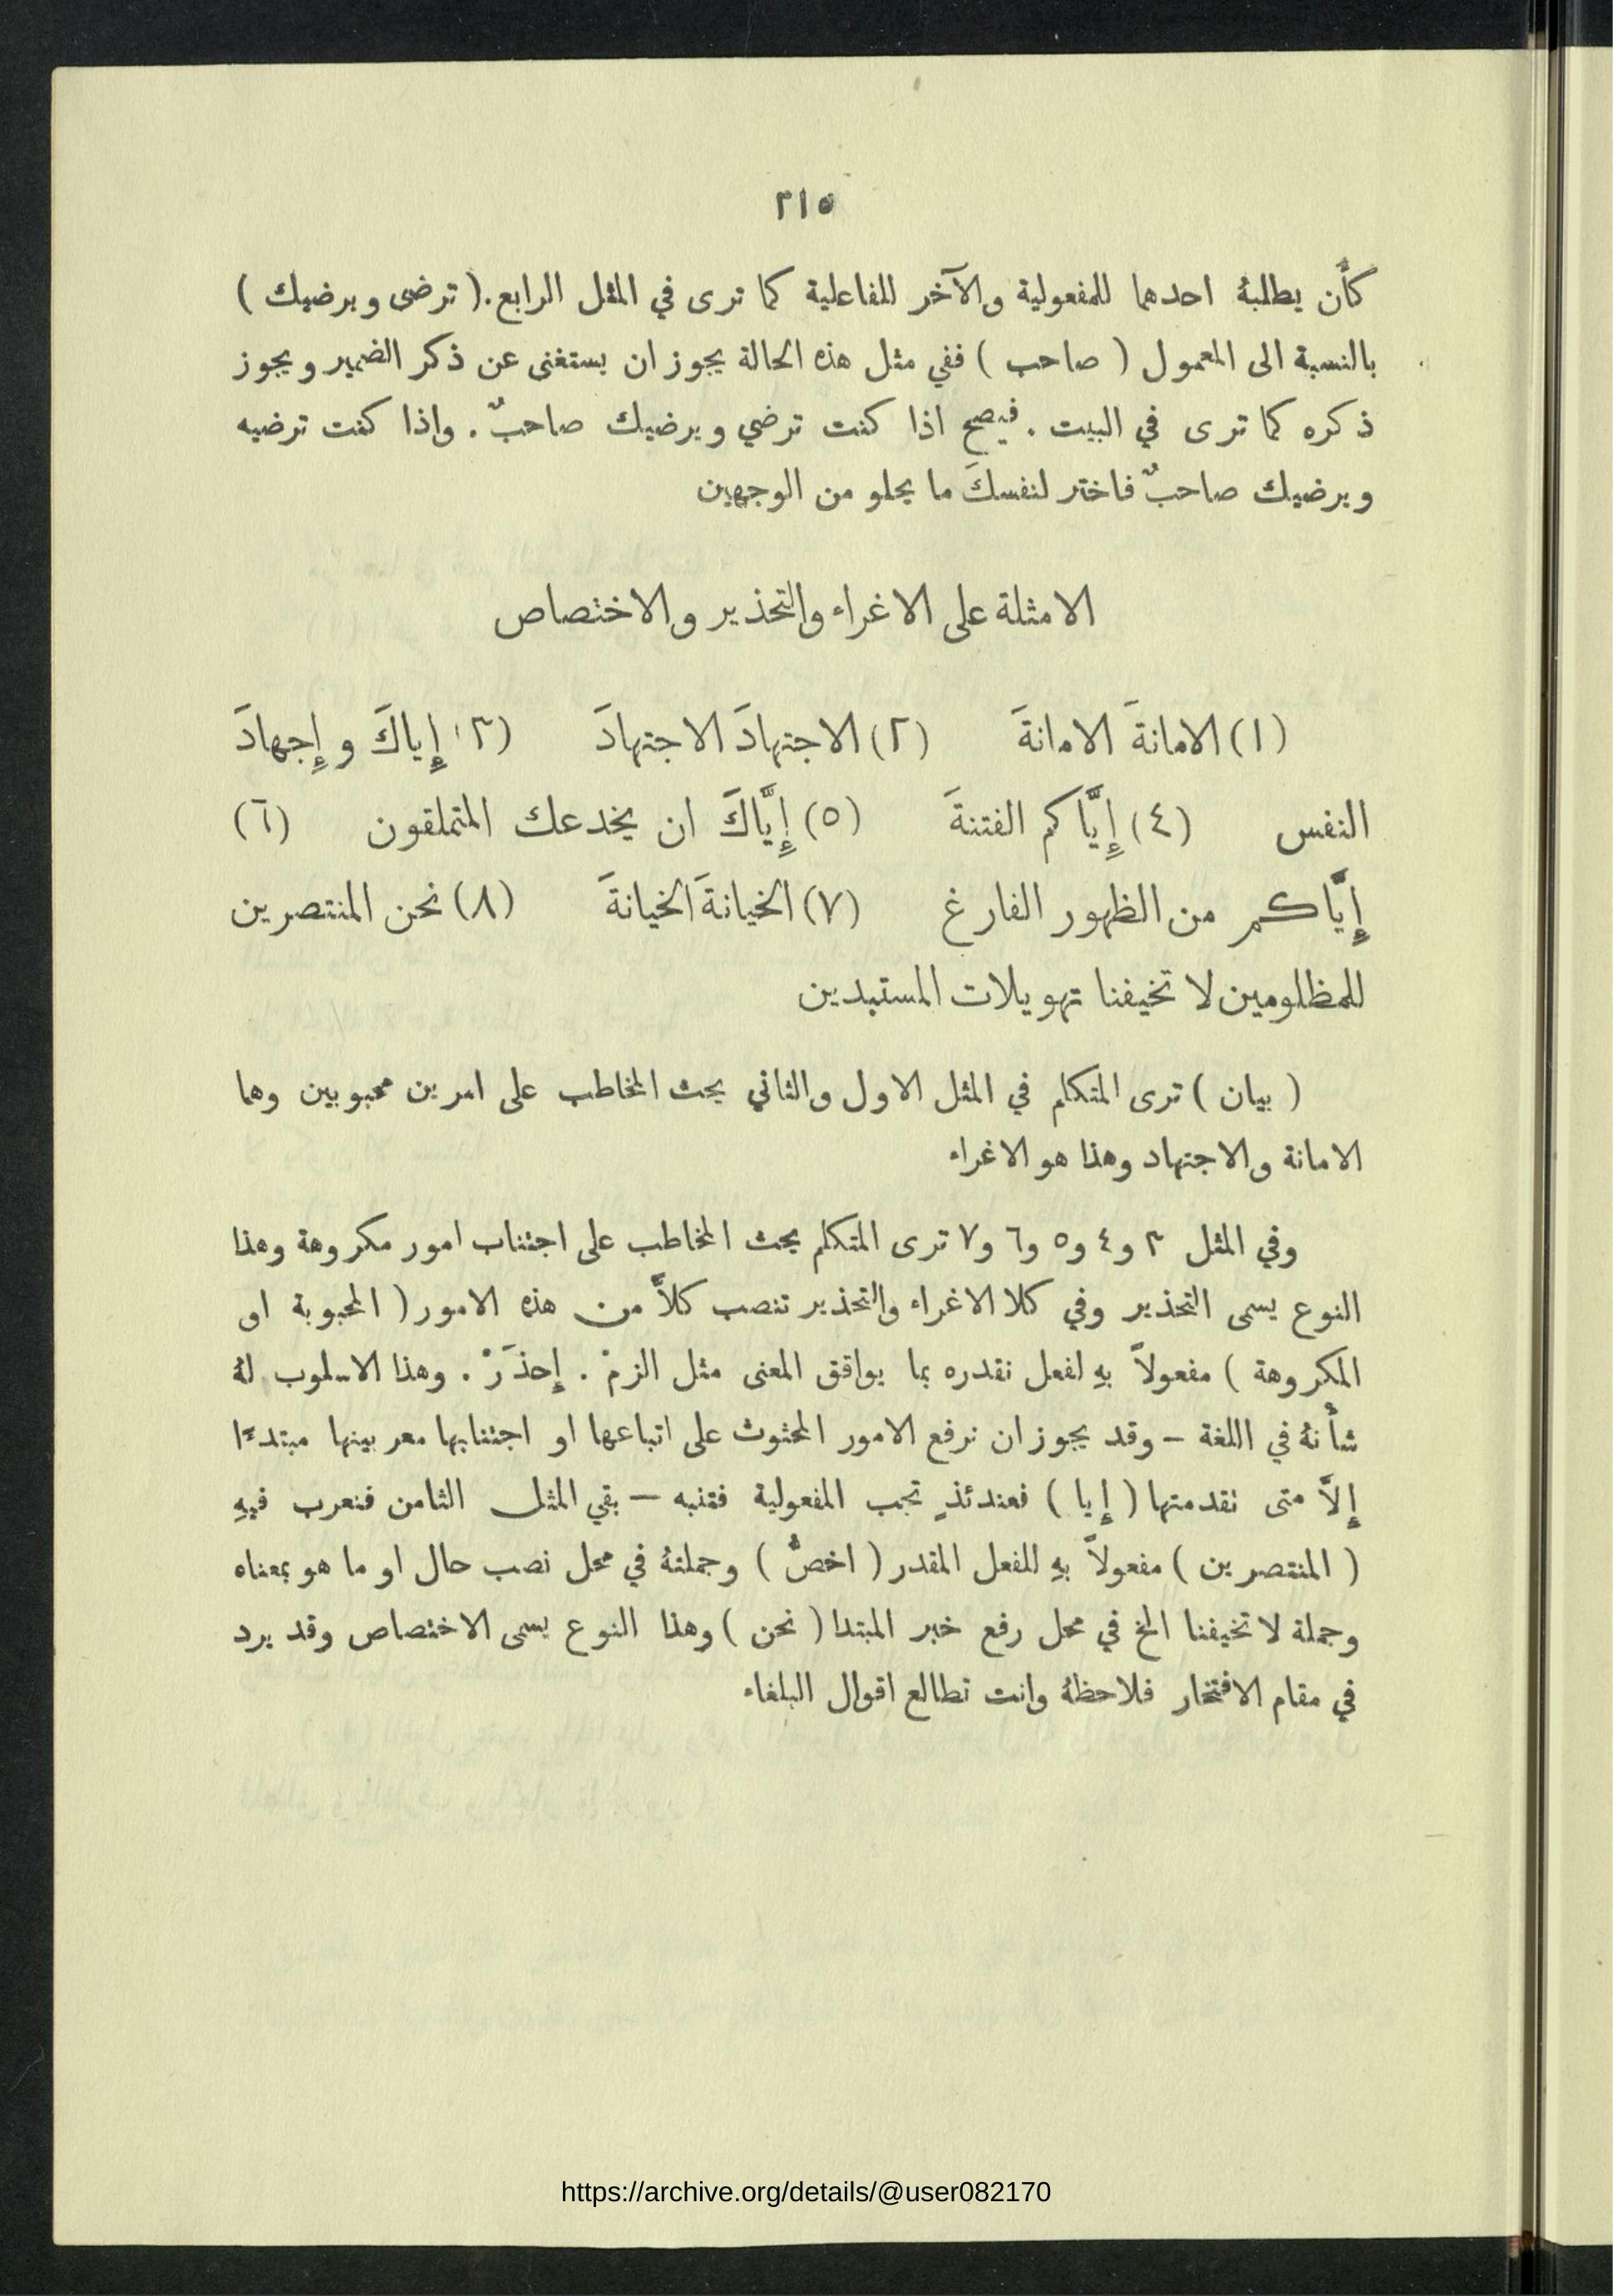 ٢١٥
كأن يطلبهُ احدهما للمفعولية والآخر للفاعلية كما ترى في المثل الرابع. ( ترضى ويرضيك )
بالنسبة الى المعمول ( صاحب ) ففي مثل هذه الحالة يجوز ان يستغنى عن ذكر الضمير ويجوز
ذكره كما ترى في البيت . فيصح اذا كنت ترضي ويرضيك صاحبٌ . واذا كنت ترضيه
ويرضيك صاحبٌ فاختر لنفسكَ ما يحلو من الوجهين
الامثلة على الاغراء والتحذير والاختصاص
(١) الامانةَ الامانةَ (٢) الاجتهادَ الاجتهادَ (٣) إِياكَ و إِجهادَ
النفس (٤) إِيَّاكم الفتنةَ (٥) إِيَّاكَ ان يخدعك المتملقون (٦)
إِيَّاكم من الظهور الفارغ (٧) الخيانةَ الخيانةَ (٨) نحن المنتصرين
للمظلومين لا تخيفنا تهويلات المستبدين
( بيان ) ترى المتكلم في المثل الاول والثاني يحث المخاطب على امرين محبوبين وهما
الامانة والاجتهاد وهذا هو الاغراء
وفي المثل ٣ و٤ و٥ و٦ و٧ ترى المتكلم يحث المخاطب على اجتناب امور مكروهة وهذا
النوع يسمى التحذير وفي كلا الاغراء والتحذير تنصب كلاًّ من هذه الامور ( المحبوبة او
المكروهة ) مفعولاً بهِ لفعل نقدره بما يوافق المعنى مثل الزمْ . إِحذَرْ . وهذا الاسلوب لهُ
شأْنهُ في اللغة – وقد يجوز ان نرفع الامور المحثوث على اتباعها او اجتنابها معربينها مبتدءًا
إِلاَّ متى تقدمتها ( إِيا ) فعندئذٍ تجب المفعولية فتنبه – بقي المثل الثامن فنعرب فيهِ
( المنتصرين ) مفعولاً بهِ للفعل المقدر ( اخصُّ ) وجملتهُ في محل نصب حال او ما هو بمعناه
وجملة لا تخيفنا الخ في محل رفع خبر المبتدا ( نحن ) وهذا النوع يسمى الاختصاص وقد يرد
في مقام الافتخار فلاحظهُ وانت تطالع اقوال البلغاء
https://archive.org/details/@user082170